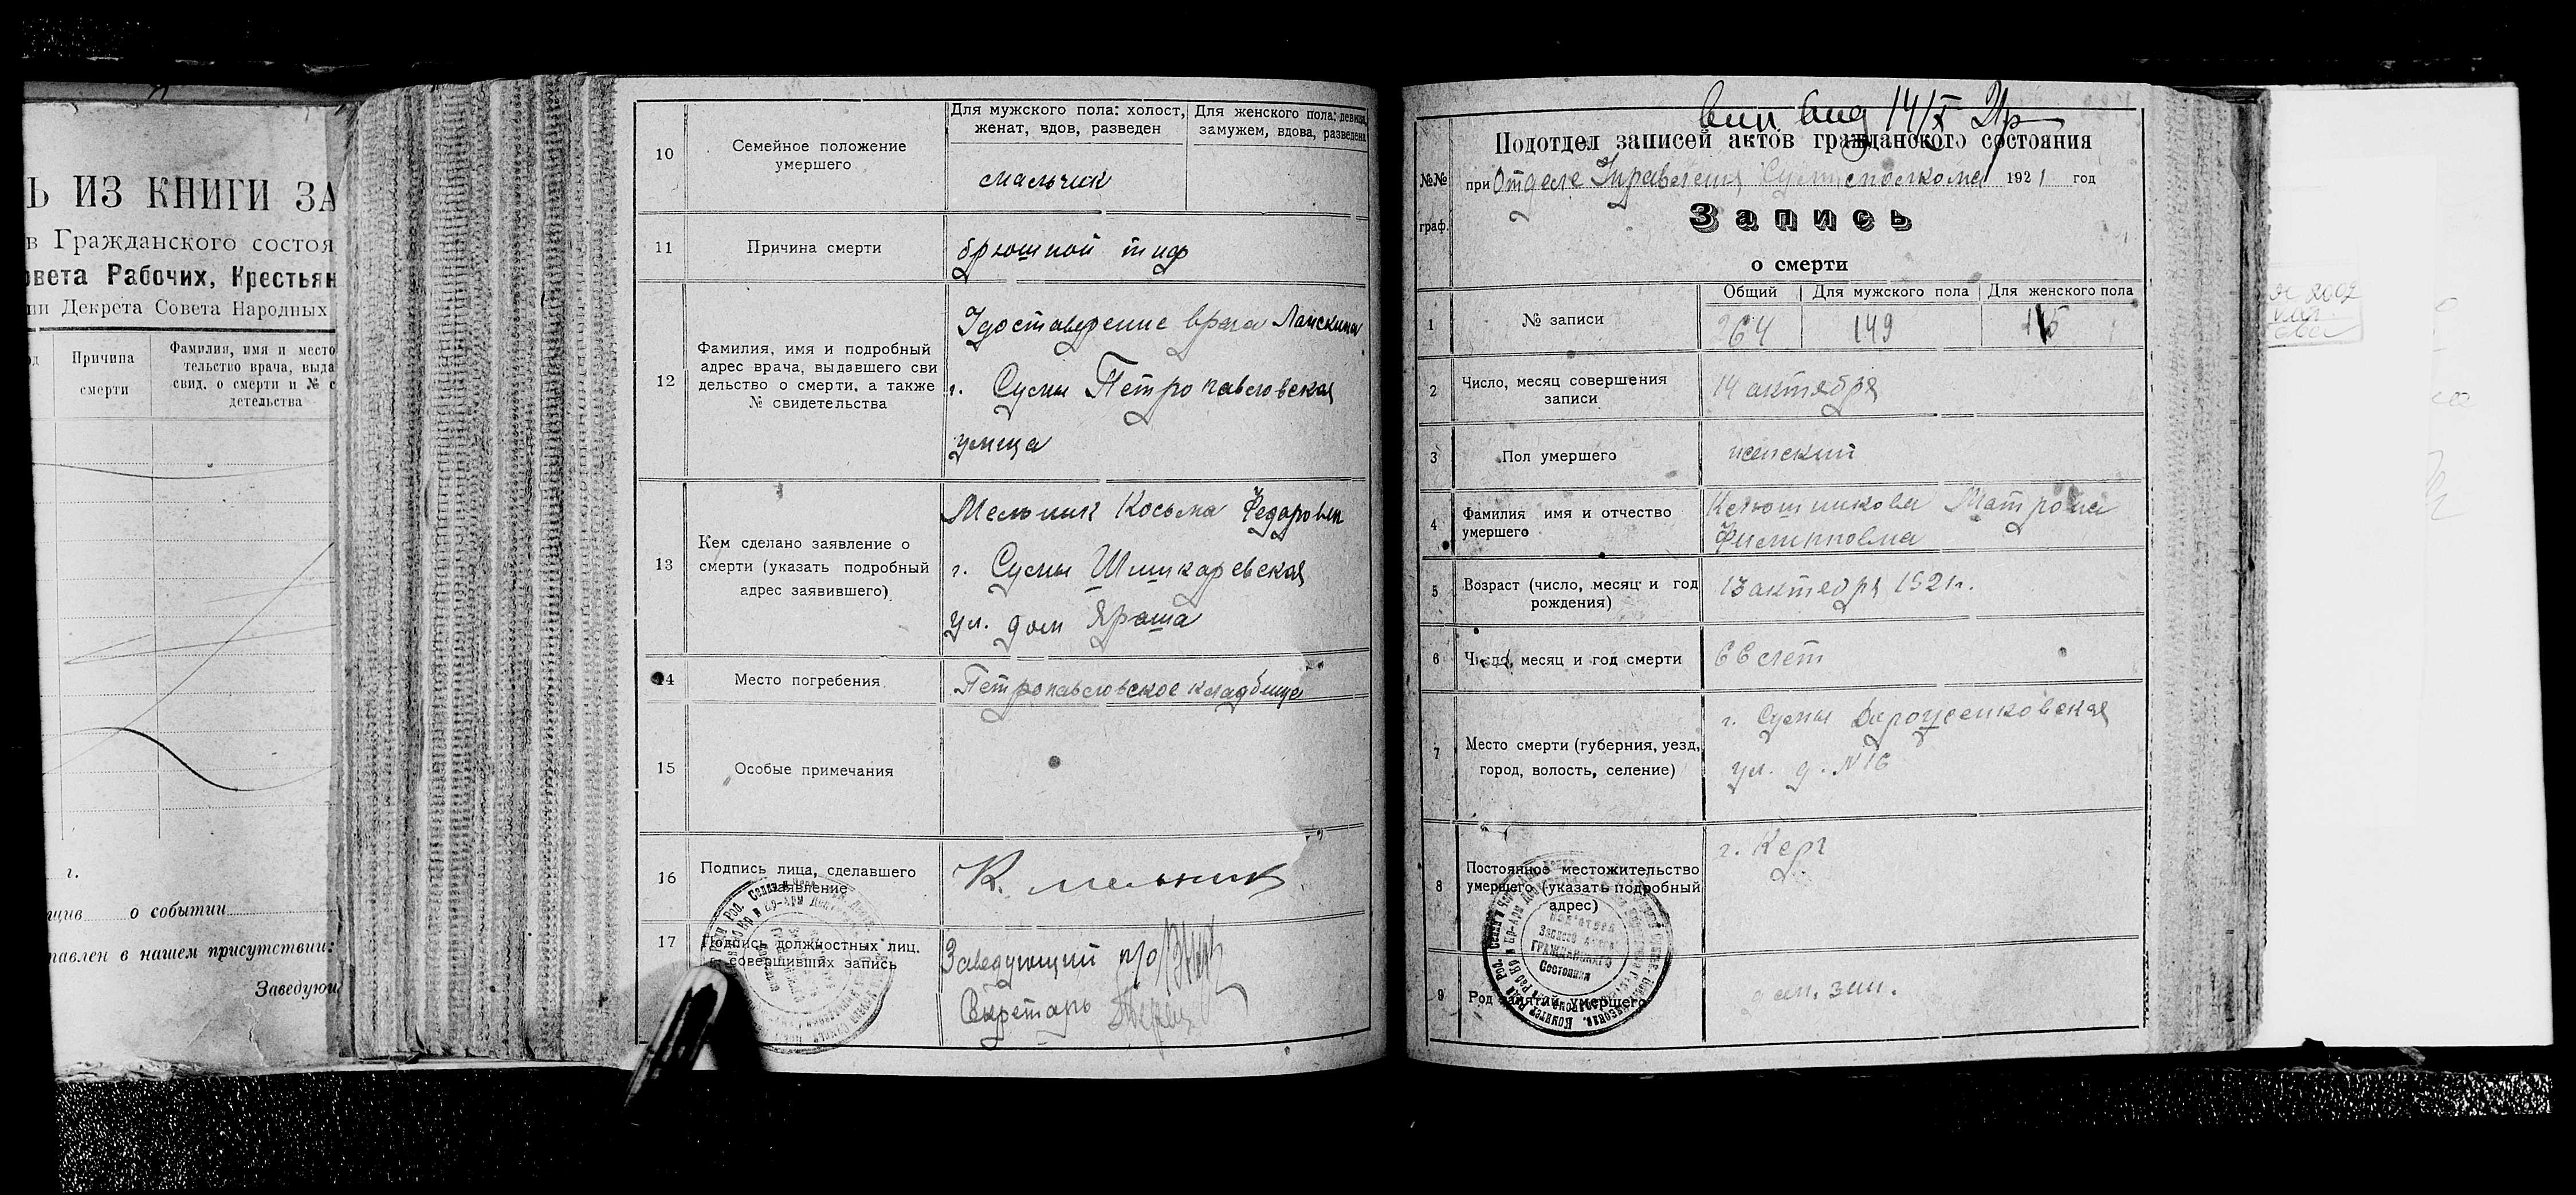 Ь ИЗ КНИГИ ЗА
в Гражданского состоя
овета Рабочих, Крестьян
ии Декрета Совета Народных
Причина
смерти
Фамилия, имя и место
тельство врача, выда
свид. о смерти и № с
детельства
г.
о событии
тавлен в нашем присутствии:
Заведую
10
Семейное положение
умершего
Для мужского пола: холост,
женат, вдов, разведен
Для женского пола: девица,
замужем, вдова, разведена
мальчик
11
Причина смерти
брюшной тиф
12
Фамилия, имя и подробный
адрес врача, выдавшего сви
дельство о смерти, а также
№ свидетельства
Удостоверение врача
г. Сумы Петропавловская
улица
13
Кем сделано заявление о
смерти (указать подробный
адрес заявившего)
Мельник Косьма Федоров
г. Сумы Шишкаревская
ул. дом Яроша
14
Место погребения
Петропавловское кладбище
15
Особые примечания
16
Подпись лица, сделавшего
заявление
К. мельник
17
Подпись должностных лиц.
совершивших запись
Заведующий п/о
Секретарь
14/X
Подотдел записей актов гражданского состояния
№№
граф.
при Отделе Управления 1921 год
Запись
о смерти
1
№ записи
Общий
Для мужского пола
Для женского пола
264
149
115
2
Число, месяц совершения
записи
14 октября
3
Пол умершего
женский
4
Фамилия имя и отчество
умершего
Матрона
Филипповна
5
Возраст (число, месяц и год
рождения)
13 октября 1921г.
6
Число, месяц и год смерти
66 лет
7
Место смерти (губерния, уезд,
город, волость, селение)
г. Сумы
ул. д. №16
8
Постоянное местожительство
умершего (указать подробный
адрес)
г.
Подотдел
Записи актов
Гражданского
Состояния
9
Род занятий умершего